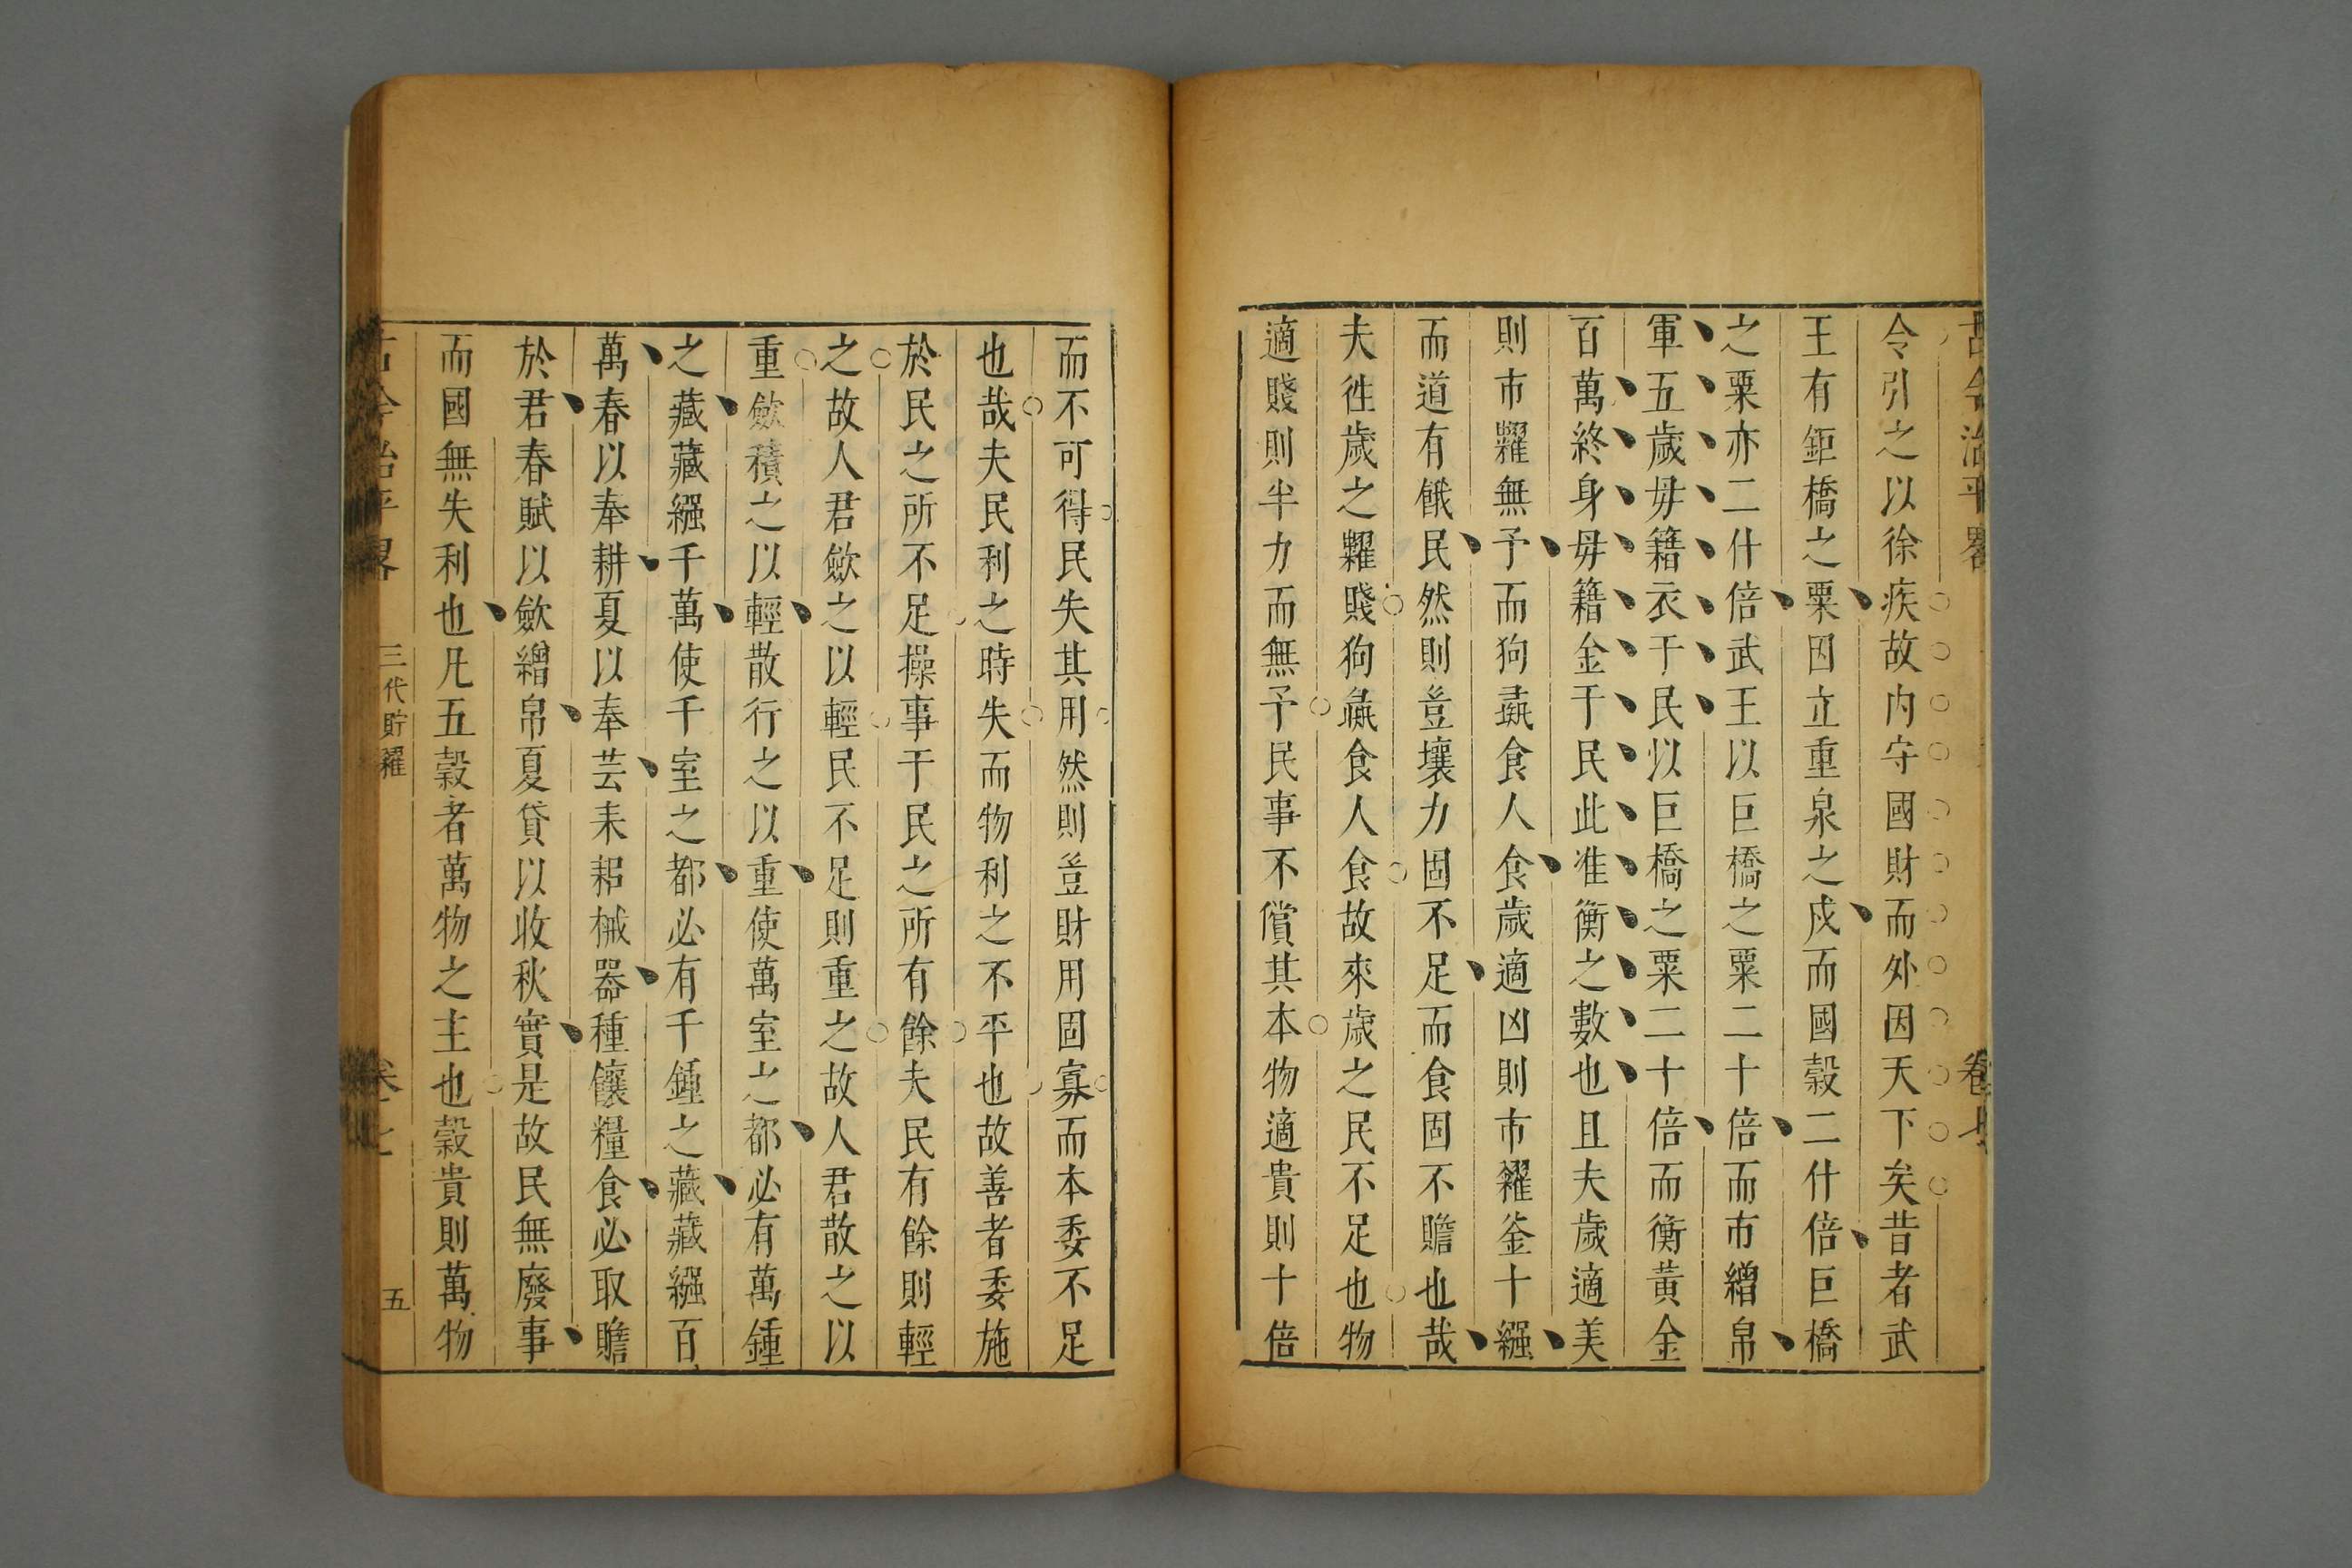 古今治平畧 卷七
令引之以徐疾故内守國財而外因天下矣昔者武
王有鉅橋之粟因立重泉之戍而國穀二什倍巨橋
之粟亦二什倍武王以巨橋之粟二十倍而市繒帛
軍五歲毋籍衣于民以巨橋之粟二十倍而衡黃金
百萬終身毋籍金于民此准衡之數也且夫歲適美
則市糶無予而狗彘食人食歲適凶則市糴釜十繦
而道有餓民然則豈壤力固不足而食固不贍也哉
夫徃歲之糶賤狗彘食人食故來歲之民不足也物
適賤則半力而無予民事不償其本物適貴則十倍
而不可得民失其用然則豈財用固寡而本委不足
也哉夫民利之時失而物利之不平也故善者委施
於民之所不足操事于民之所有餘夫民有餘則輕
之故人君歛之以輕民不足則重之故人君散之以
重歛積之以輕散行之以重使萬室之都必有萬鍾
之藏藏繦千萬使千室之都必有千鍾之藏藏繦百
萬春以奉耕夏以奉芸耒耜械器種饟糧食必取贍
於君春賦以歛繒帛夏貸以收秋實是故民無廢事
而國無失利也凡五穀者萬物之主也穀貴則萬物
古今治平畧 三代貯糴 卷七 五